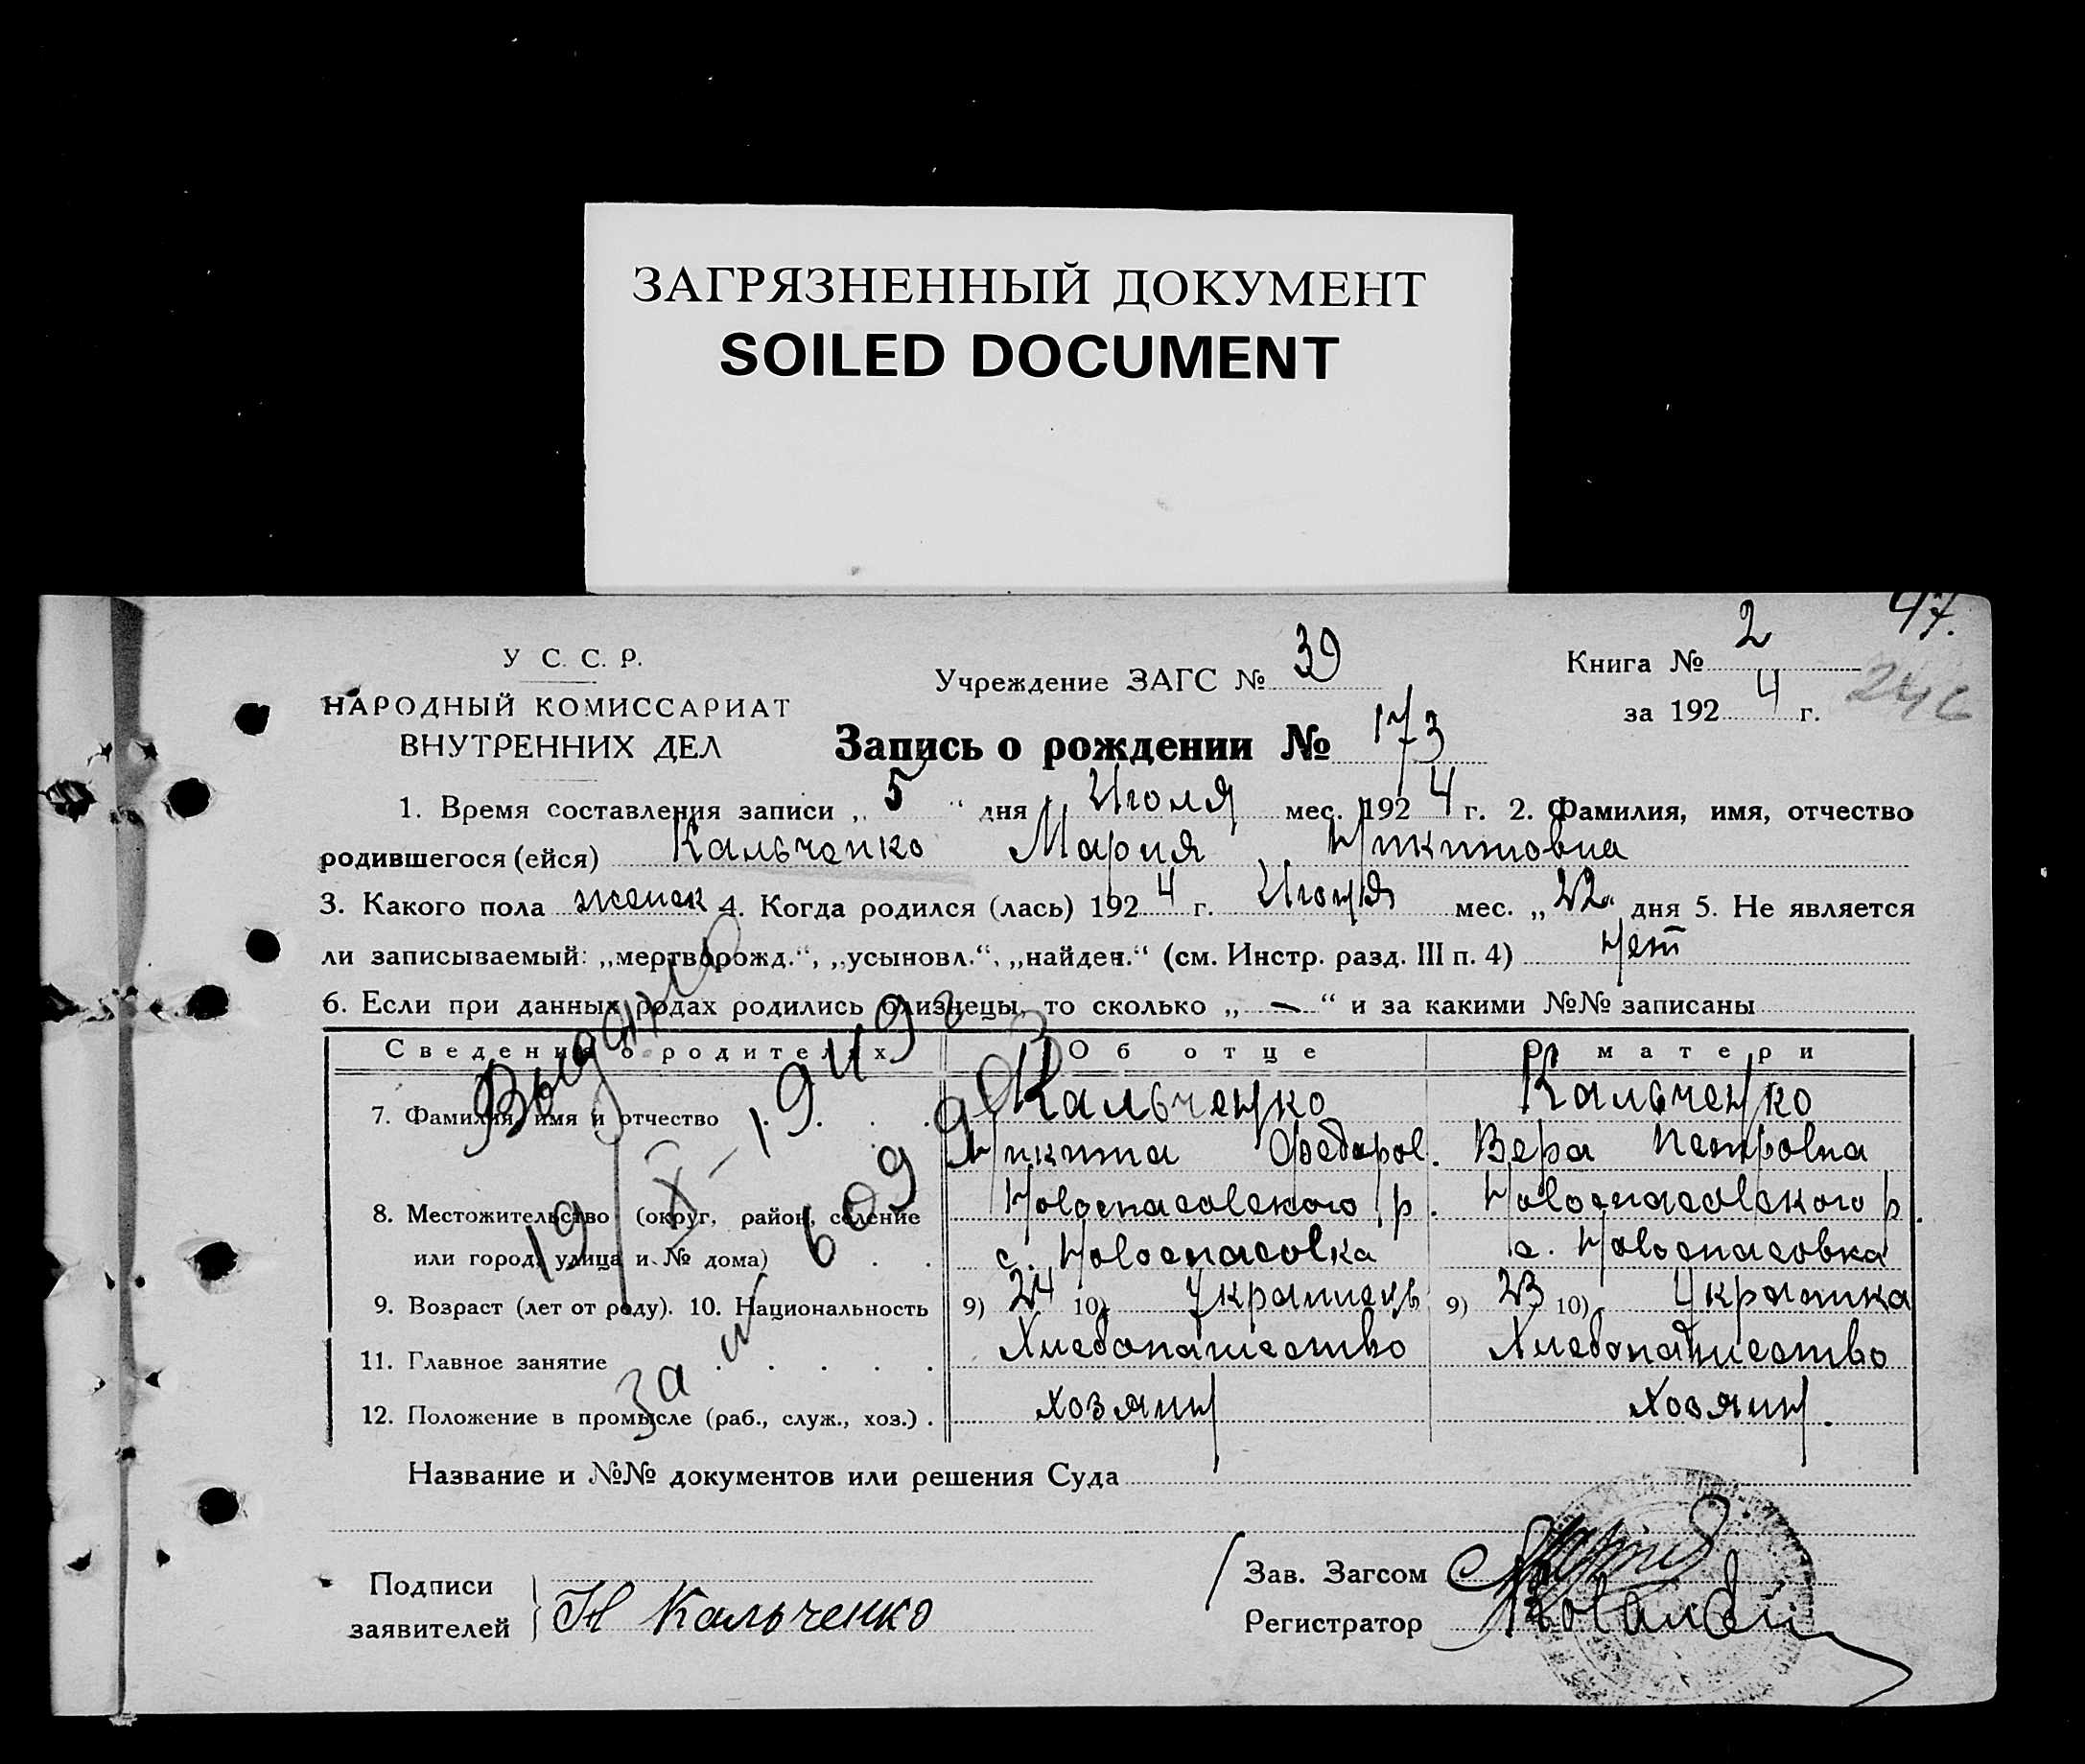 ЗАГРЯЗНЕННЫЙ ДОКУМЕНТ
SOILED DOCUMENT
47.
У С. С. Р.
НАРОДНЫЙ КОМИССАРИАТ
ВНУТРЕННИХ ДЕЛ
Учреждение ЗАГС № 39
Книга № 2
за 192 4 г. 246
Запись о рождении № 173
1. Время составления записи „ 5 “ дня Июля мес. 192 4 г. 2. Фамилия, имя, отчество
родившегося (ейся) Кальченко Мария Никитовна
3. Какого пола женск 4. Когда родился (лась) 192 4 г. Июня мес. „ 22 дня 5. Не является
ли записываемый: „мертворожд.“, „усыновл.“, „найден.“ (см. Инстр. разд. III п. 4) Нет
6. Если при данных родах родились близнецы, то сколько „ — “ и за какими №№ записаны
Сведения о родителях Об отце О матери
7. Фамилия, имя и отчество Кальченко Кальченко
Никита Федоров. Вера Петровна
8. Местожительство (округ, район, селение Новоспасовского р. Новоспасовского р.
или город, улица и № дома) с. Новоспасовка с. Новоспасовка
9. Возраст (лет от роду). 10. Национальность 9) 24 10) Украинець 9) 23 10) Украинка
11. Главное занятие Хлебопашество Хлебопашество
12. Положение в промысле (раб., служ., хоз.) хозяин хозяин.
19/X-1949г
за №
Название и №№ документов или решения Суда
Подписи
заявителей Н Кальченко
Зав. Загсом
Регистратор